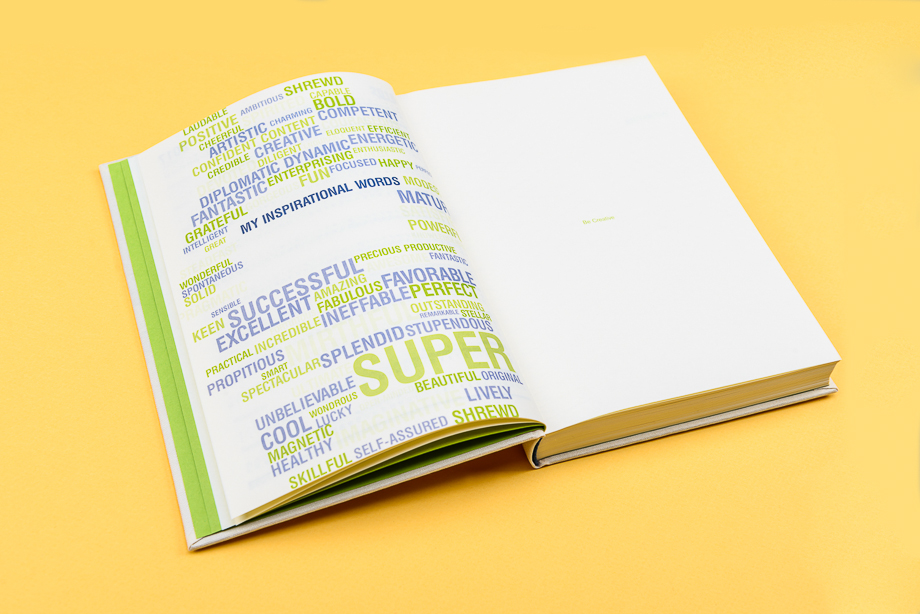 SHREWD
LAUDABLE AMBITIOUS CAPABLE
POSITIVE BOLD
CHEERFUL CHARMING COMPETENT
ARTISTIC
CONFIDENT CONTENT ELOQUENT EFFICIENT
CREDIBLE CREATIVE ENERGETIC
DILIGENT ENTHUSIASTIC
DIPLOMATIC DYNAMIC
FANTASTIC ENTERPRISING FOCUSED HAPPY
FUN
GRATEFUL MY INSPIRATIONAL WORDS
INTELLIGENT
GREAT
WONDERFUL
SPONTANEOUS PRECIOUS PRODUCTIVE
SOLID FANTASTIC
SENSIBLE SUCCESSFUL FAVORABLE
KEEN AMAZING
EXCELLENT FABULOUS PERFECT
INEFFABLE OUTSTANDING
PRACTICAL INCREDIBLE REMARKABLE
PROPITIOUS SPLENDID STUPENDOUS
SMART
SPECTACULAR SUPER
UNBELIEVABLE BEAUTIFUL ORIGINAL
WONDROUS LIVELY
COOL LUCKY
MAGNETIC IMAGINATIVE SHREWD
HEALTHY SELF-ASSURED
SKILLFUL
Be Creative